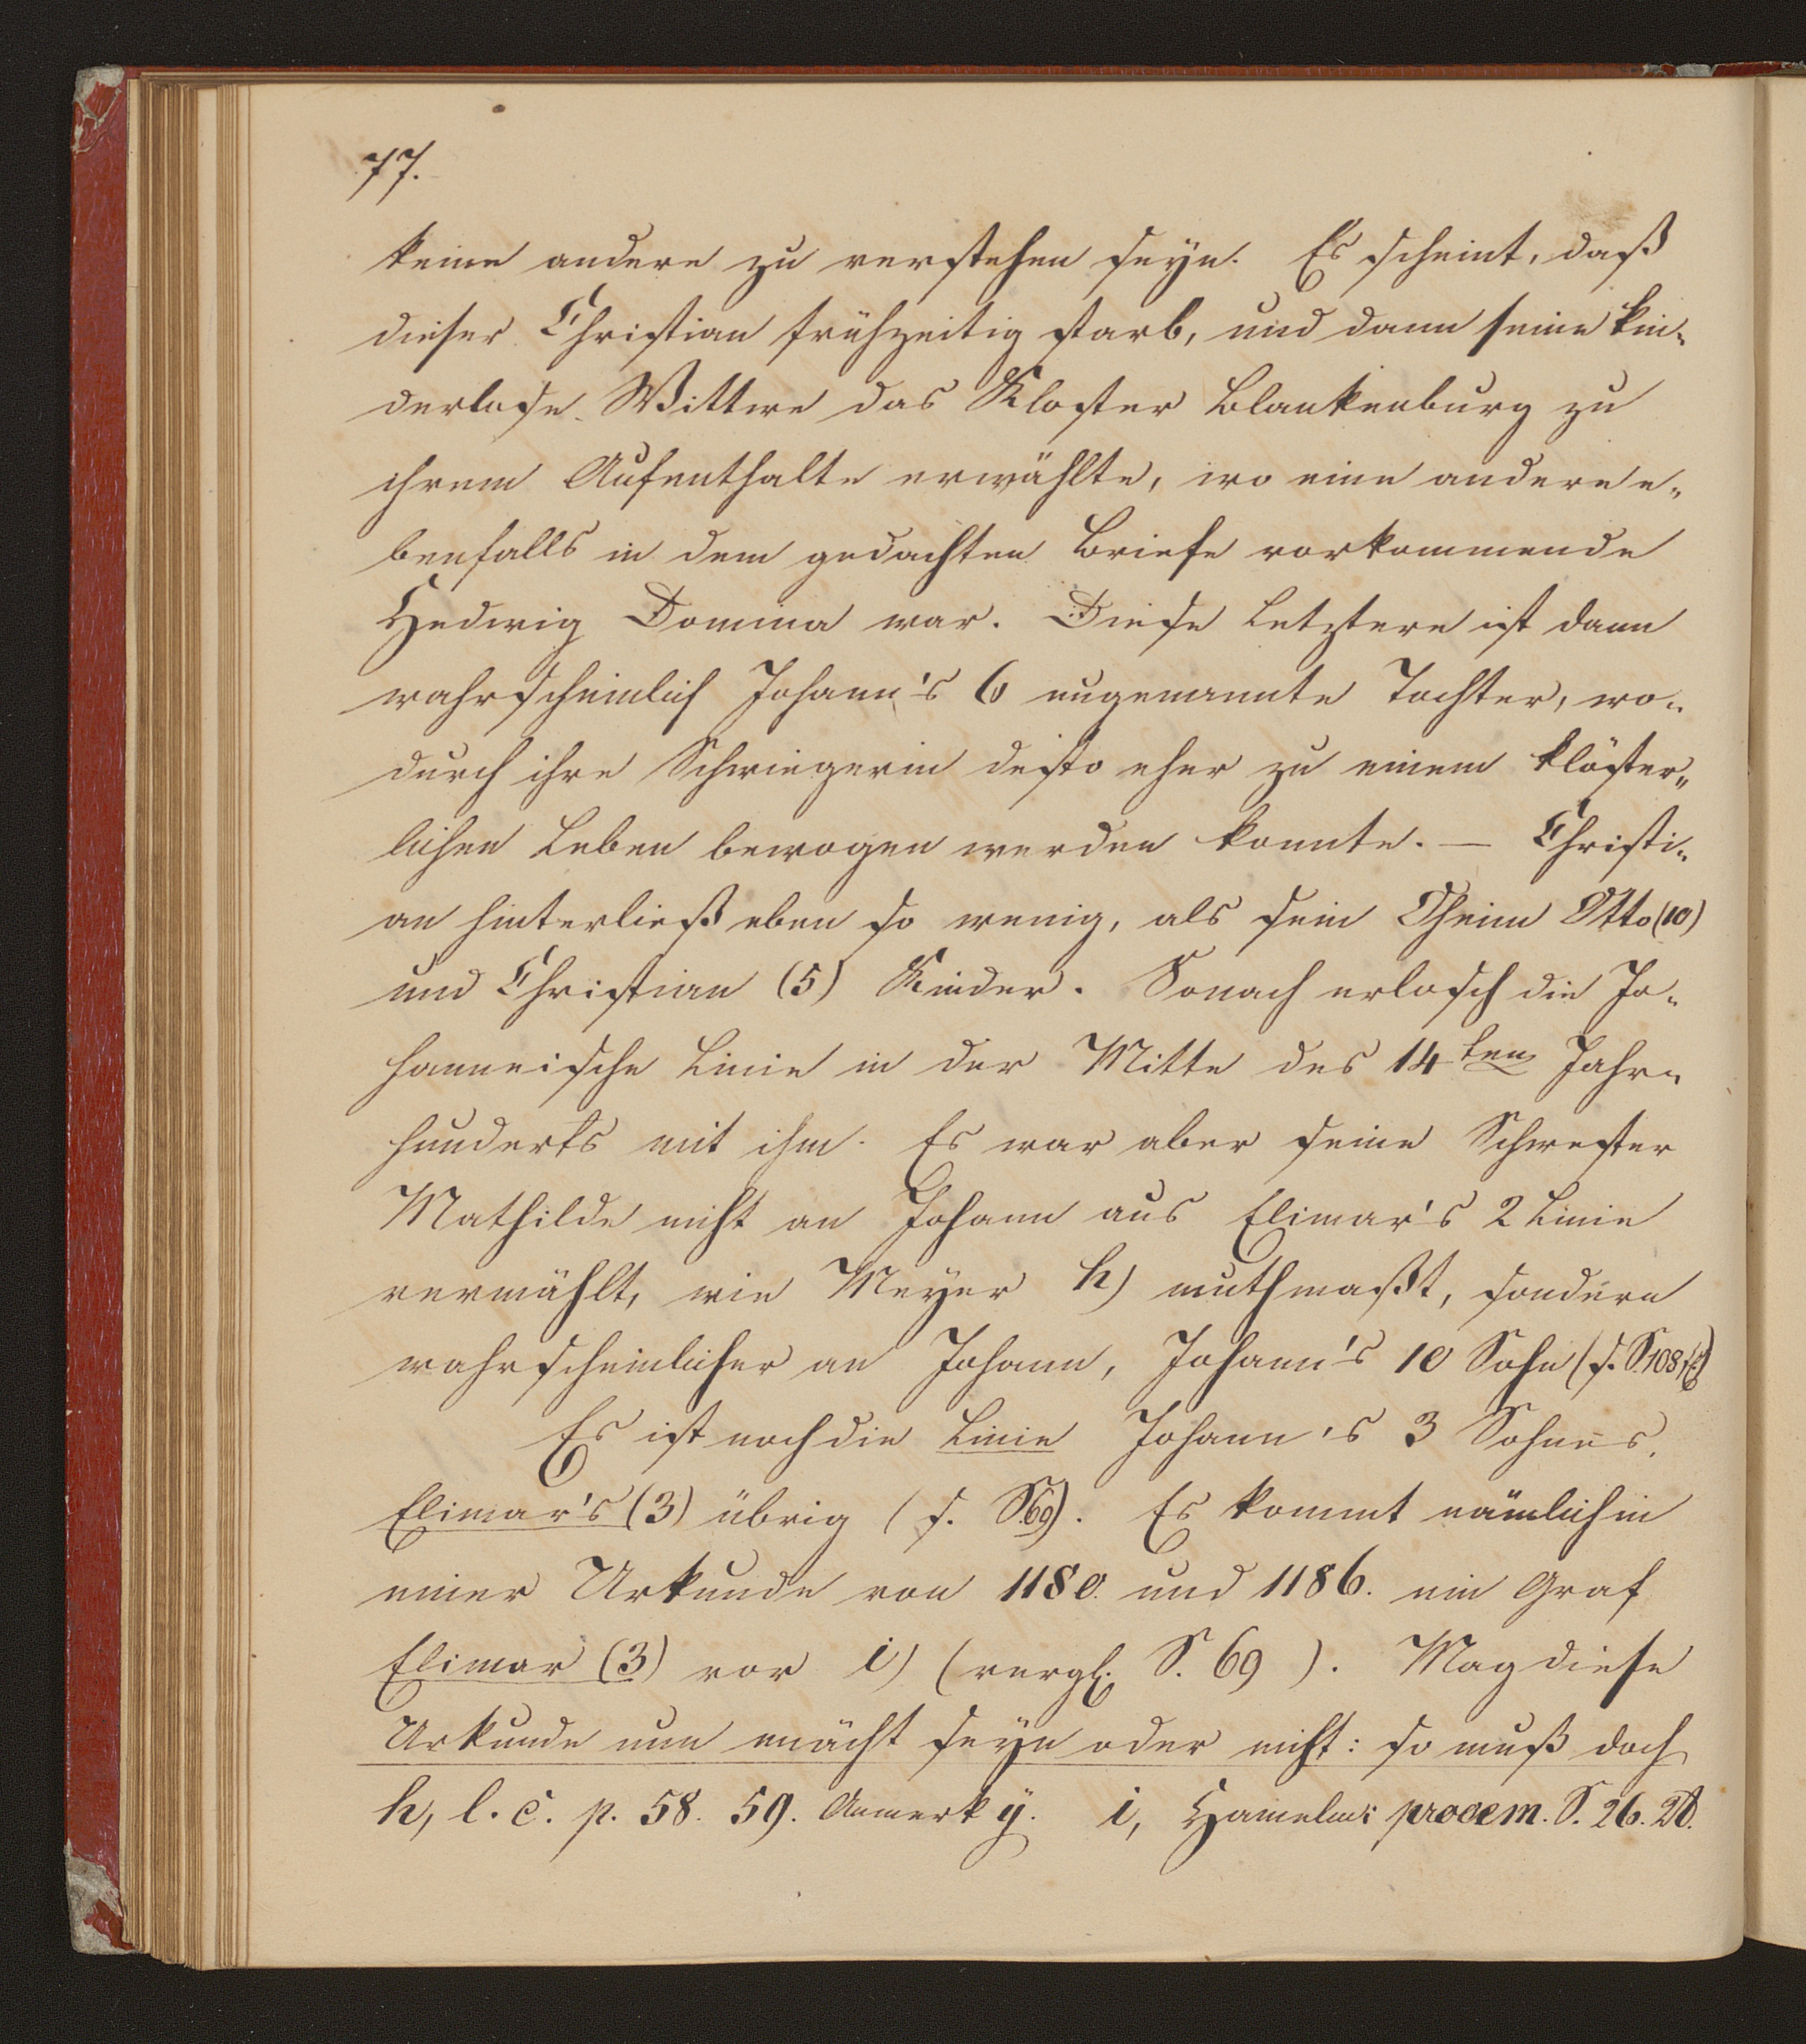 77.
keine andere zu verstehen seyn. Es scheint, daß
dieser Christian frühzeitig starb, und dann seine kin-
derlose Wittwe das Kloster Blankenburg zu
ihrem Aufenthalte erwählte, wo eine andere e-
benfalls in dem gedachten Briefe vorkommende
Hedwig Domina war. Diese Letztere ist dann
wahrscheinlich Johann's 6 ungenannte Tochter, wo-
durch ihre Schwiegerin desto eher zu einem klöster-
lichen Leben bewogen werden konnte. — Christi-
an hinterließ eben so wenig, als sein Oheim Otto (10)
und Christian (5) Kinder. Sonach erlosch die Jo-
hanneische Linie in der Mitte des 14ten Jahr-
hunderts mit ihm. Es war aber seine Schwester
Mathilde nicht an Johann aus Elimar's 2 Linie
vermählt, wie Meyer h) muthmaßt, sondern
wahrscheinlicher an Johann, Johann's 10 Sohn (s. S. 108,
Es ist noch die Linie Johann's 3 Sohnes,
Elimar's (3) übrig (s. S. 69). Es kommt nämlich in
einer Urkunde von 1180. und 1186. ein Graf
Elimar (3) vor i) (vergl. S. 69 ). Mag diese
Urkunde nun unächt seyn oder nicht: so muß doch
h, l. c. p. 58. 59. Anmerk y. i, Hamelm: prooem. S. 26.